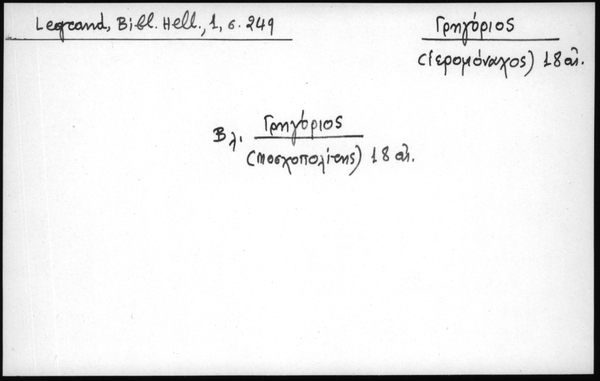 Legrand, Bibl. Hell., 1, σ. 249
Γρηγόριος
(Ιερομόναχος) 18 αι.
Βλ. Γρηγόριος
(Μοσχοπολίτης) 18 αι.